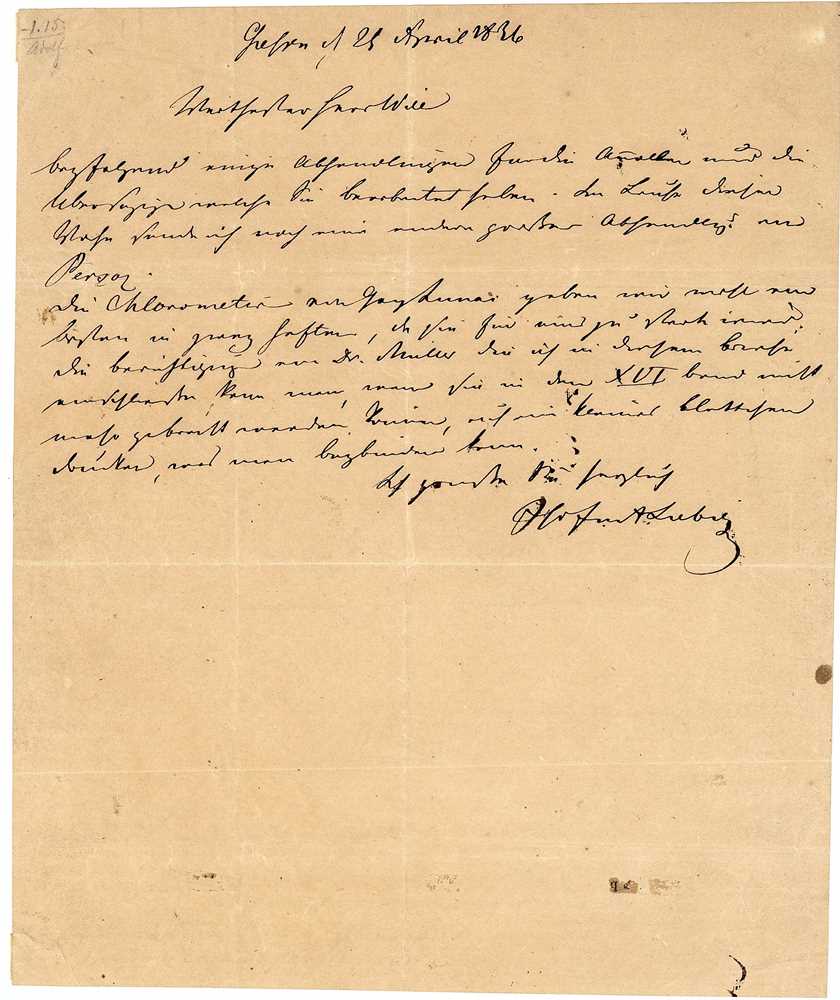 -1.15
Adolf
Giessen d 25 April 1836
Werthester Herr Will
beyfolgend einige Abhandlungen für die Annalen und die
Übersetzung welche Sie bearbeitet haben. Im Laufe dieser
Woche sende ich noch eine andere große Abhandlg. von
Persoz.
Die Chlorometrie von Gay Lussac geben wir wohl am
besten in zwey Heften, da sie für eins zu stark wird.
Die Berichtigung von Dr. Müller die ich in diesem Briefe
einschließe kann man, wenn sie in dem XVI Band nicht
mehr gebracht werden kann, auf ein kleines Blättchen
drucken, was man beybinden kann.
Ich grüße Sie herzlich
Liebig